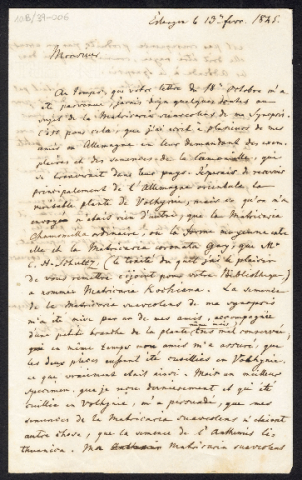 108/39-006
Erlangen le 13 févr. 1845.
Monsieur
Au temps, que votre lettre du 18 Octobre m'a
été parvenue, j'avais déja quelques doutes au
sujet de la Matricaria suaveolens de ma Synopsis.
c'est pour cela, que j'ai écrit à plusieurs de mes
amis en Allemagne en leur demandant des exem-
plaires et des semences de la Camomille, qui
se trouverait dans leur pays. J'éspérais de recevoir
principalement de l'Allemagne orientale la
véritable plante de Volhynie, mais ce qu'on m'a
envoyé n'était rien d'autre, que la Matricaria
Chamomilla ordinaire, ou la forme moyenne entre
elle et la Matricaria coronata Gay, que Mr.
C. H. Schultz (le traité du quel j'ai le plaisir
de vous remettre cijoint pour votre Bibliothèque)
a nommée Matricaria Kochiana. La semence
de la Matricaria suaveolens de ma synopsis
m'a été livrée par un de mes amis, accompagnée
d'une petite branche de la plante, très mal conservée,
qui a même temps mon ami m'a assuré, que
les deux pièces eussent été cueillies en Volhynie,
ce que vraiment était ainsi. Mais un meilleur
specimen, que je reçu dernierement et qui été
cueillie en Volhynie, m'a persuadé, que mes
semences de la Matricaria suaveolens n'étaient
autre chose, que la semence de l'Anthemis li-
thuanica. Ma Matricaria suaveolens